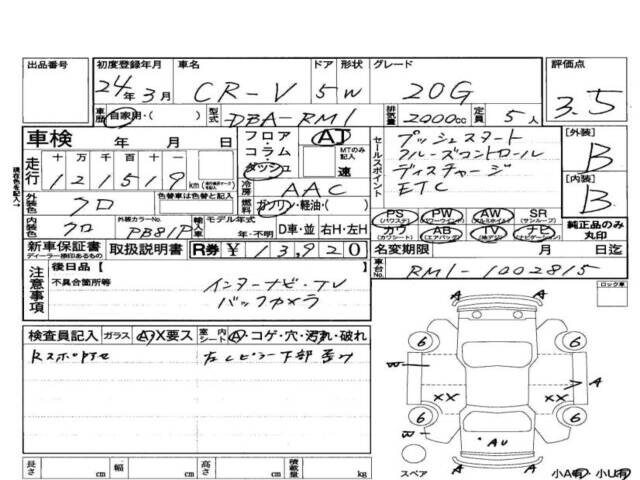 出品番号 初度登録年月 車名 ドア 形状 グレード 評価点
24年 3月 CR-V 5 W 20G 3.5
車歴 自家用・( ) 型式 DBA-RM1 排気量 2000cc 定員 5人
車検 年 月 日
フロア・コラム・ダッシュ AT MTのみ記入 速
セールスポイント
プッシュスタート
クルーズコントロール
ディスチャージ
ETC
[外装] B
[内装] B
走行 十万千百十一
121519 km
冷房 AAC
外装色 クロ 色替車は色替と記入( ) 燃料 ガソリン・軽油・( )
内装色 クロ 外装カラーNo. PB81P 輸入車 モデル年式 年・不明 D車・並 右H・左H
PS (パワステ) PW (パワーウインド) AW (アルミホイル) SR (サンルーフ)
カワ (カワシート) AB (エアバッグ) TV (地デジ) ナビ (ナビゲーション)
純正品のみ丸印
新車保証書 ディーラー捺印あるもの 取扱説明書 R券 ¥13,920
名変期限 月 日迄
車台No. RM1-1002815
注意事項 後日品[ ]
不具合箇所等
インターナビ・TV
バックカメラ
ロック車
検査員記入 ガラス A・X要ス 室内シート A・コゲ・穴・汚れ・破れ
左Cピラー下部
A
A
6 6
B
A
XX XX
6 6
B
AU
A
スペア
長さ cm 幅 cm 高さ cm 積載量 kg
小A有・小U有